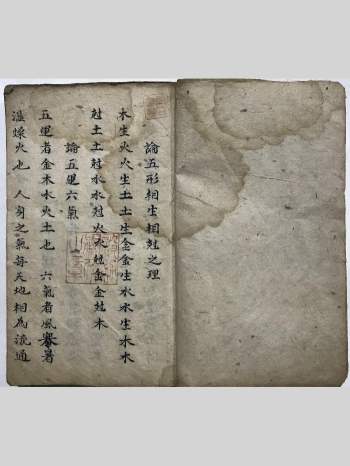 論五形相生相尅之理
木生火火生土土生金金生水水生木木
尅土土尅水水尅火火尅金金尅木
論五運六氣
五運者金木水火土也　六氣者風寒暑
濕燥火也　人身之氣每天地相為流通